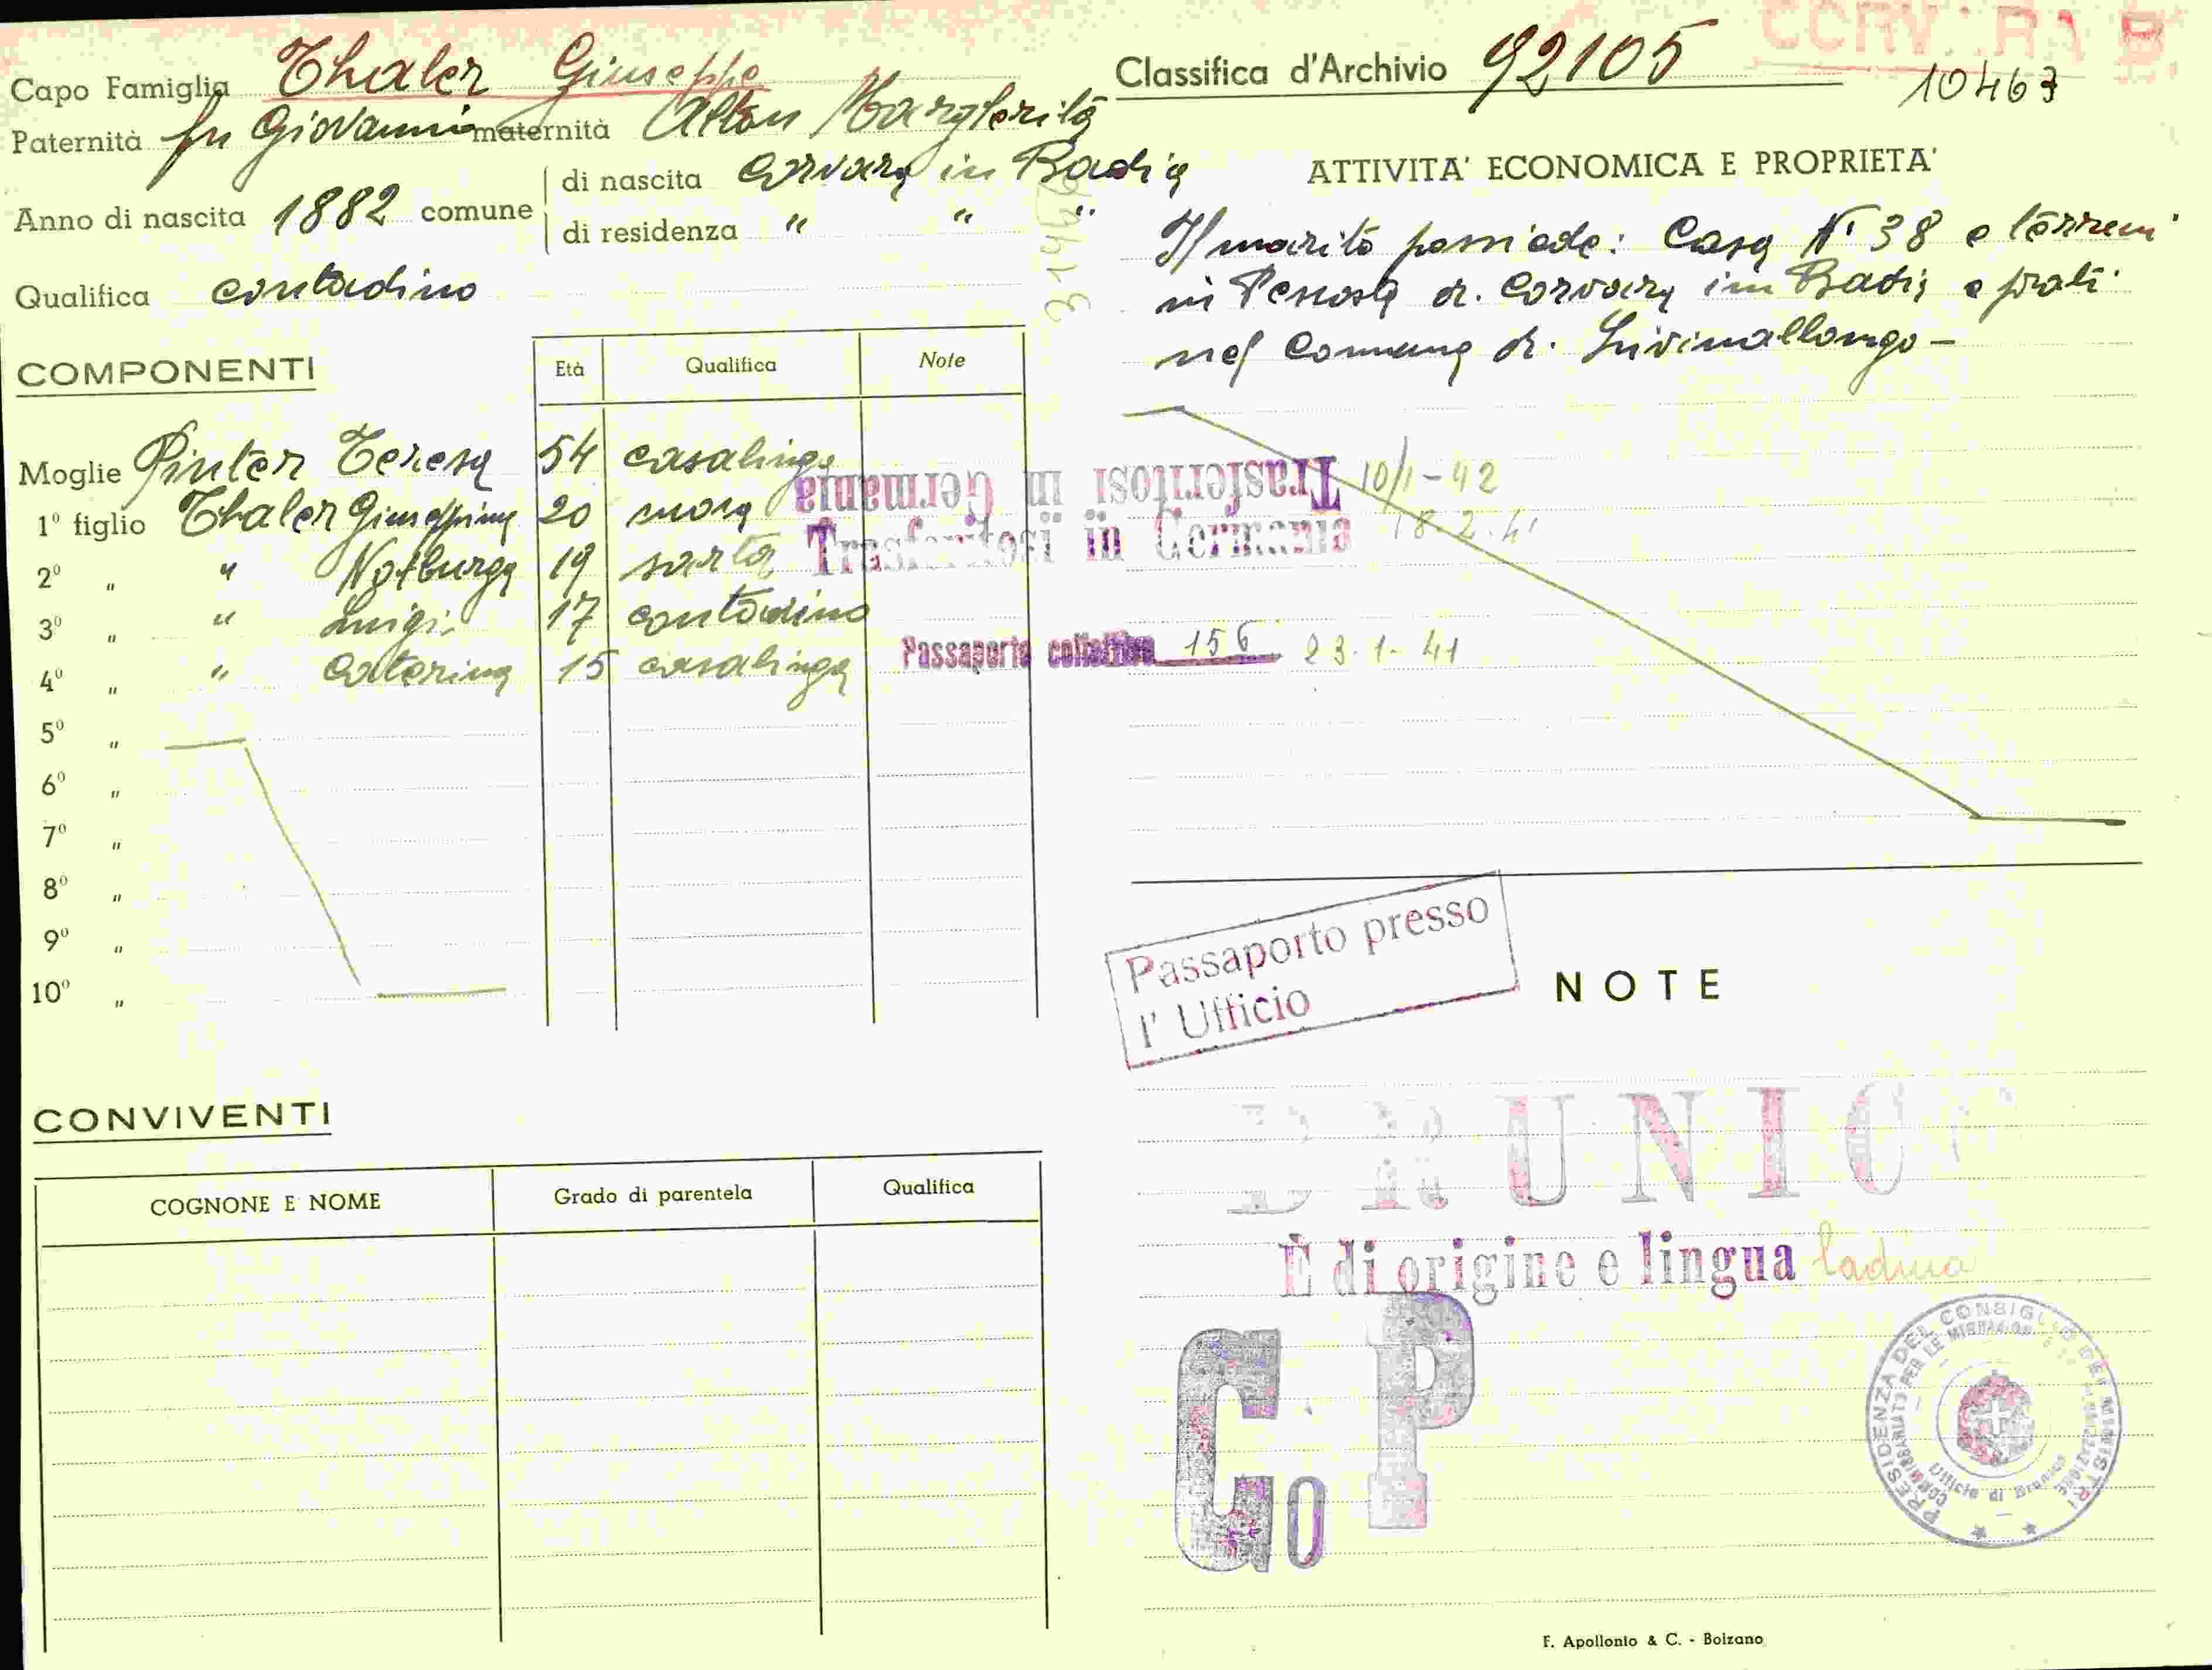 CORVARA B
Capo Famiglia Thaler Giuseppe
Classifica d'Archivio 92105
10463
Paternità fu Giovanni maternità Alton Margherita
Anno di nascita 1882 comune
di nascita Corvara in Badia
di residenza " " "
Qualifica contadino
ATTIVITA' ECONOMICA E PROPRIETA'
Il marito possiede: Casa N° 38 e terreni
in Pescosta di Corvara in Badia e prati
nel Comune di Livinallongo -
COMPONENTI
Età Qualifica Note
Moglie Pinter Teresa 54 casalinga
1° figlio Thaler Giuseppina 20 suora
2° " " Notburga 19 sarta
3° " " Luigi 17 contadino
4° " " Caterina 15 casalinga
5° "
6° "
7° "
8° "
9° "
10° "
Trasferitosi in Germania 10/1-42
Trasferitosi in Germania 18.2.41
Passaporto collettivo 156 23-1-41
Passaporto presso
l' Ufficio
NOTE
BRUNIC
È di origine e lingua ladina
G O P
PRESIDENZA DEL CONSIGLIO DEI MINISTRI
COMMISSARIATO PER LE MIGRAZIONI
Ufficio di Brunico
CONVIVENTI
COGNONE E NOME Grado di parentela Qualifica
F. Apollonio & C. - Bolzano